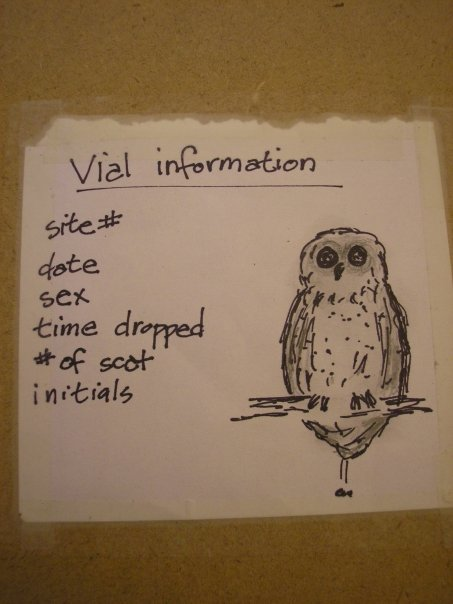 Vial information
site#
date
sex
time dropped
# of scat
initials